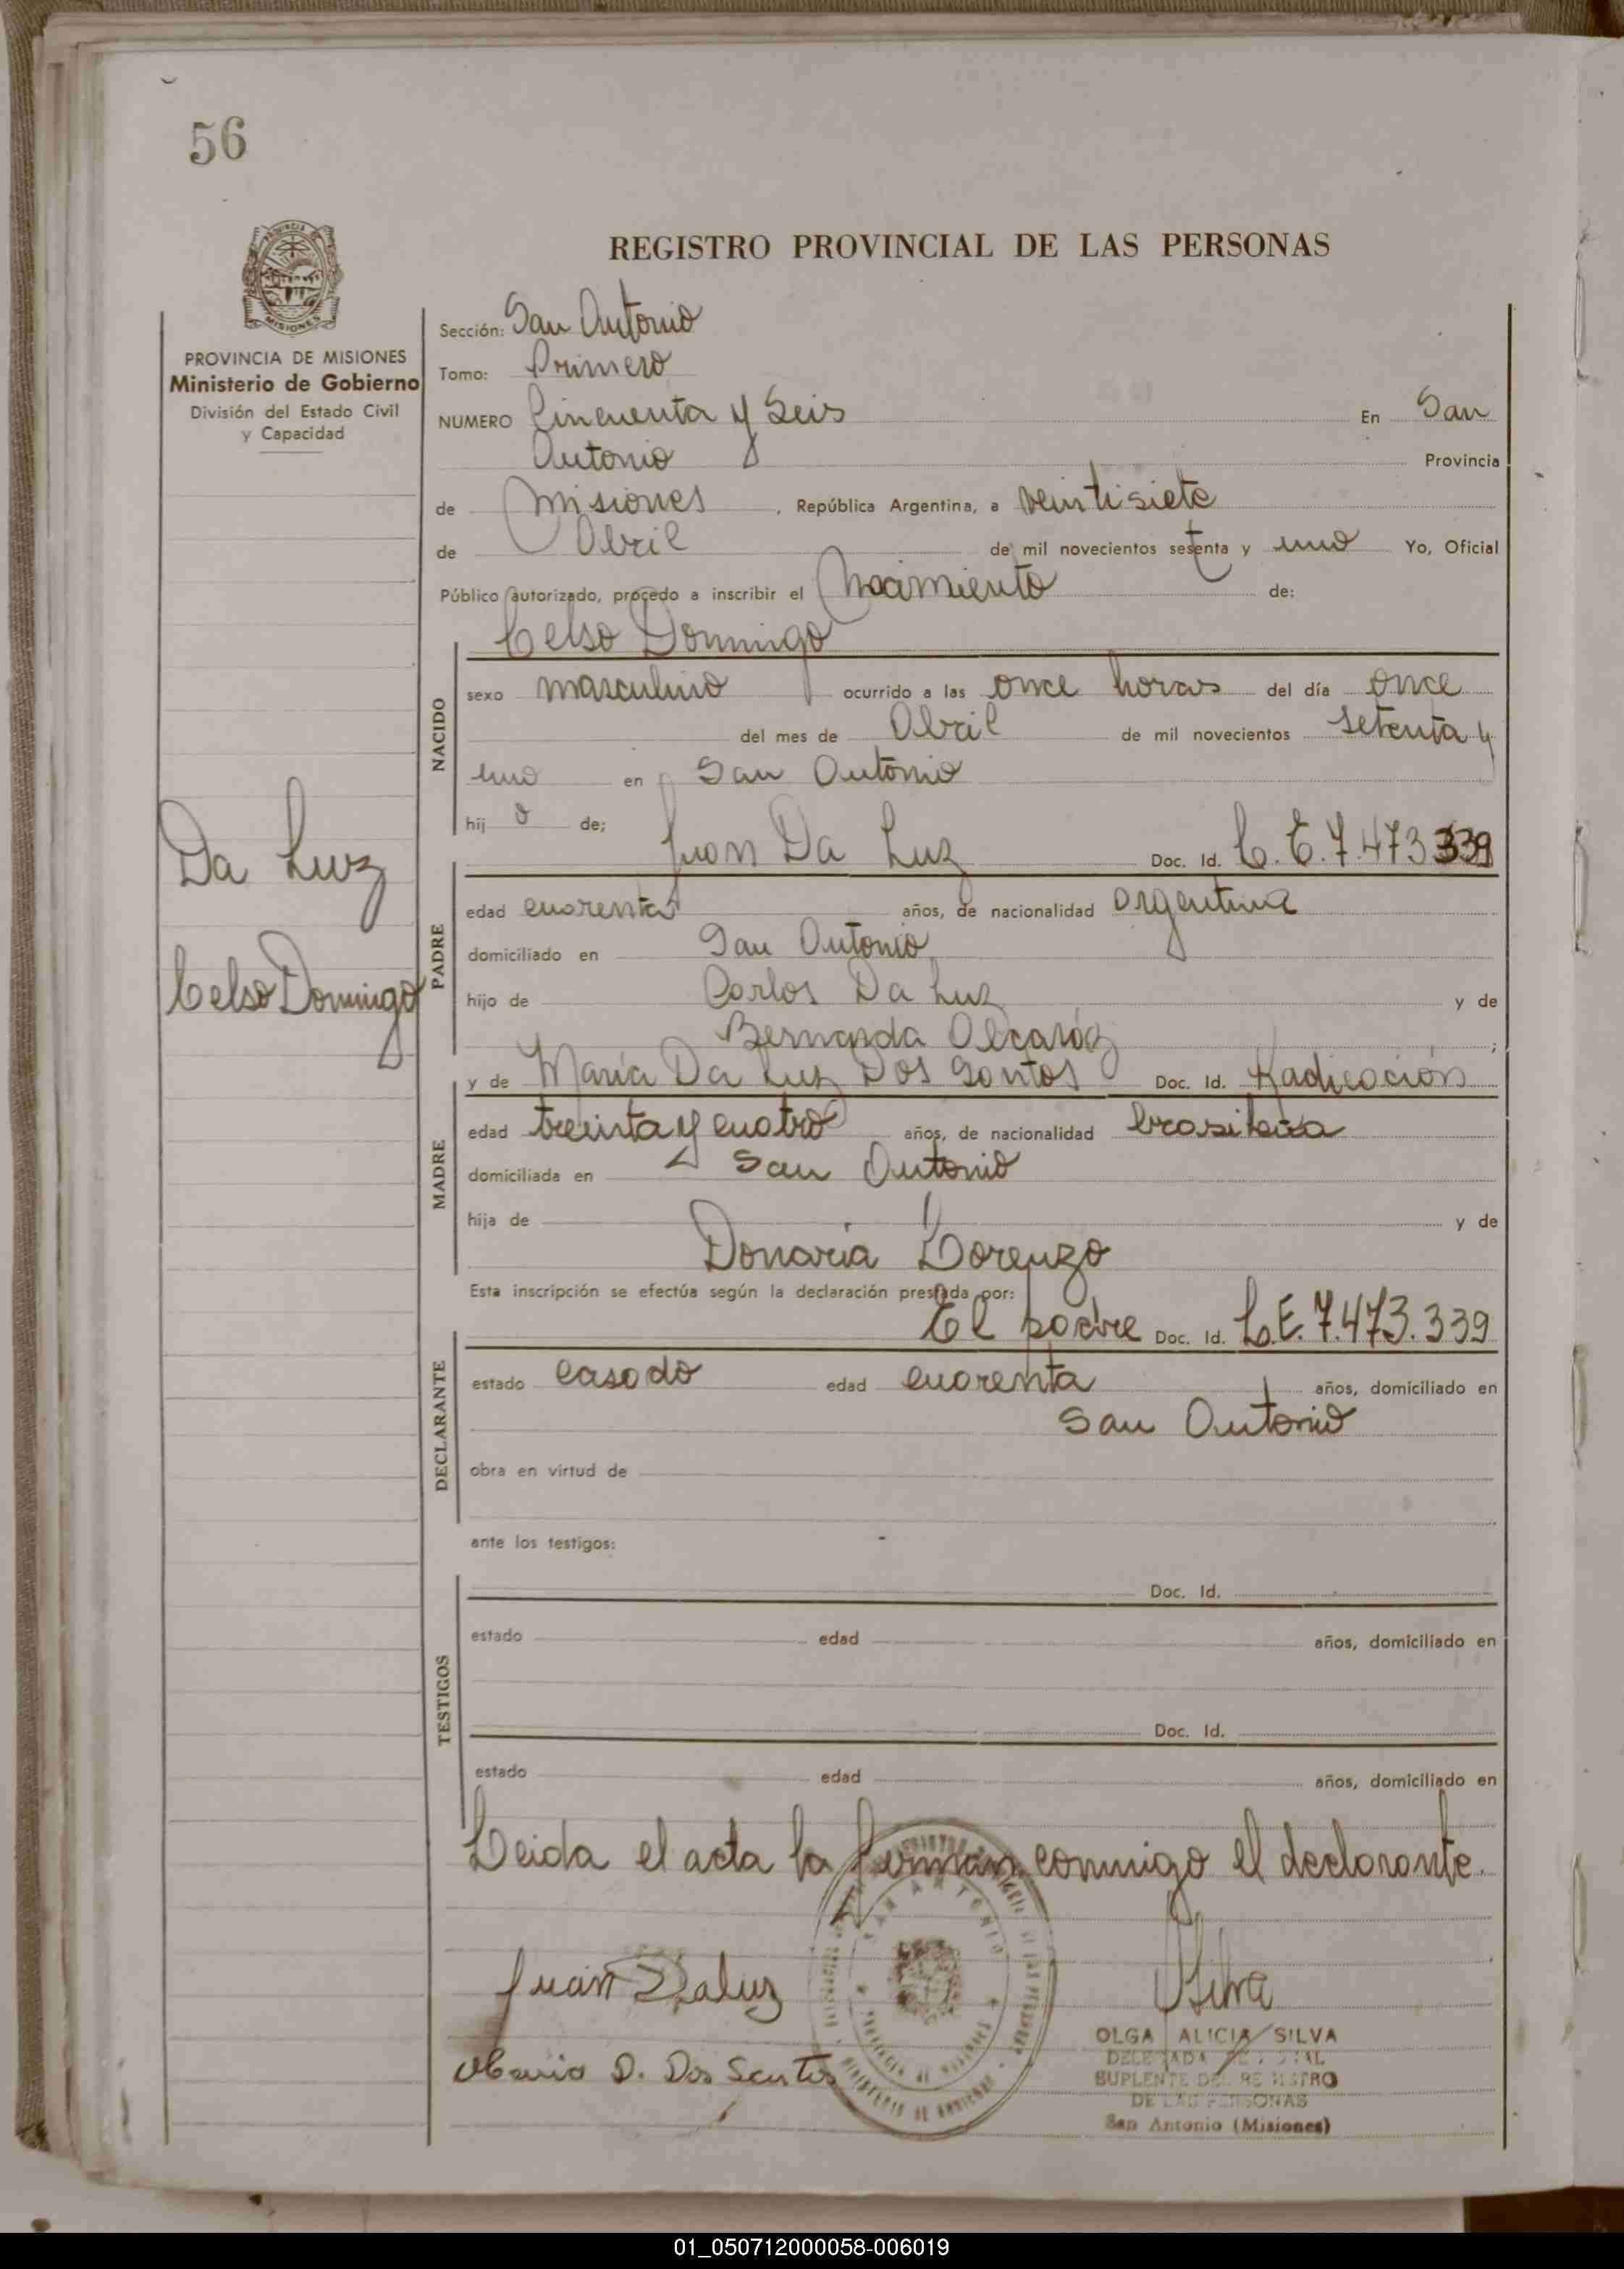 56
REGISTRO PROVINCIAL DE LAS PERSONAS
MISIONES
PROVINCIA DE MISIONES
Ministerio de Gobierno
División del Estado Civil
y Capacidad
Da Luz
Celso Domingo
Sección: San Antonio
Tomo: Primero
NUMERO Cincuenta y Seis En San
Antonio Provincia
de Misiones, República Argentina, a veintisiete
de Abril de mil novecientos setenta y uno Yo, Oficial
Público autorizado, procedo a inscribir el Nacimiento de:
Celso Domingo
NACIDO
sexo masculino ocurrido a las once horas del día once
del mes de Abril de mil novecientos setenta y
uno en San Antonio
hij o de;
PADRE
Juan Da Luz Doc. Id. L.E. 7.473.339
edad cuarenta años, de nacionalidad argentina
domiciliado en San Antonio
hijo de Carlos Da Luz y de
Bernarda Alcaráz ;
MADRE
y de María Da Luz Dos Santos Doc. Id. Radicación
edad treinta y cuatro años, de nacionalidad brasilera
domiciliada en San Antonio
hija de y de
Donaria Lorenzo
Esta inscripción se efectúa según la declaración prestada por:
DECLARANTE
El padre Doc. Id. L.E. 7.473.339
estado casado edad cuarenta años, domiciliado en
San Antonio
obra en virtud de
ante los testigos:
TESTIGOS
Doc. Id.
estado edad años, domiciliado en
Doc. Id.
estado edad años, domiciliado en
Leida el acta la firman conmigo el declarante.
Juan Daluz
Maria D. Dos Santos
SAN ANTONIO
PROVINCIA DE MISIONES
MINISTERIO DE GOBIERNO
OSilva
OLGA ALICIA SILVA
DELEGADA
SUPLENTE DEL REGISTRO
DE LAS PERSONAS
San Antonio (Misiones)
01_050712000058-006019